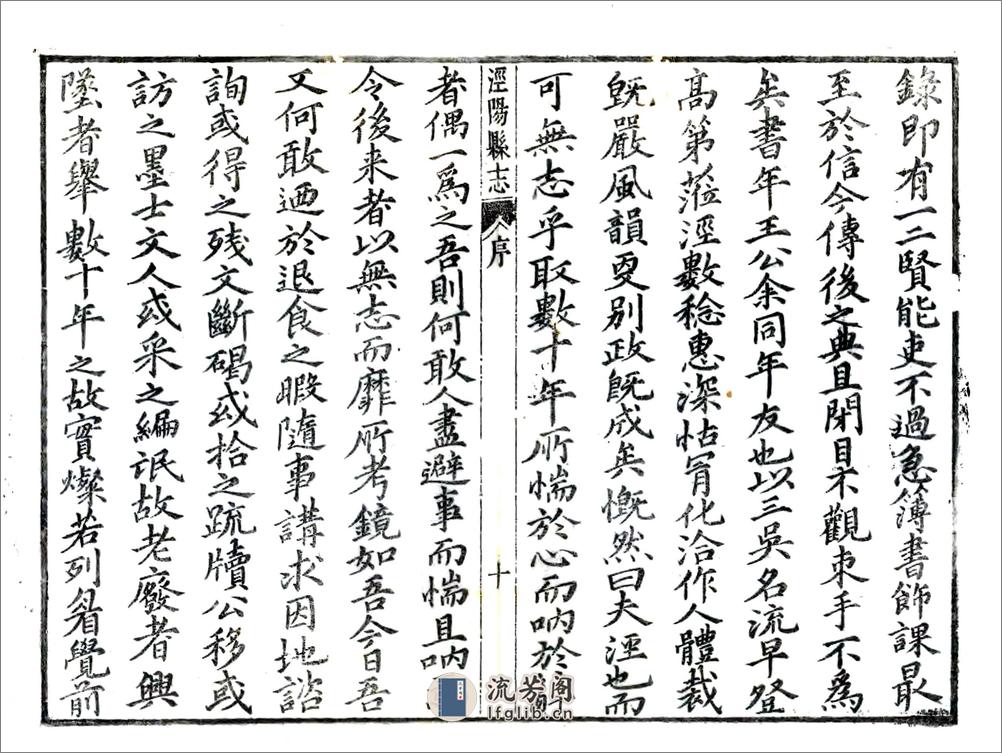 錄即有一二賢能吏不過急簿書飾課最
至於信今傳後之典且閉目不觀束手不為
矣書年王公余同年友也以三吳名流早登
高第蒞涇數稔惠深怙冐化洽作人體裁
旣嚴風韻更别政旣成矣慨然曰夫涇也而
可無志乎取數十年所惴於心而吶於
涇陽縣志 序 十
者偶一爲之吾則何敢人盡避事而惴且吶
令後来者以無志而靡所考鏡如吾今日吾
又何敢廼於退食之暇隨事講求因地諮
詢或得之残文斷碣或拾之疏牘公移或
訪之墨士文人或采之編氓故老廢者興
墜者舉數十年之故實燦若列眉覺前
流芳阁
lfglib.cn